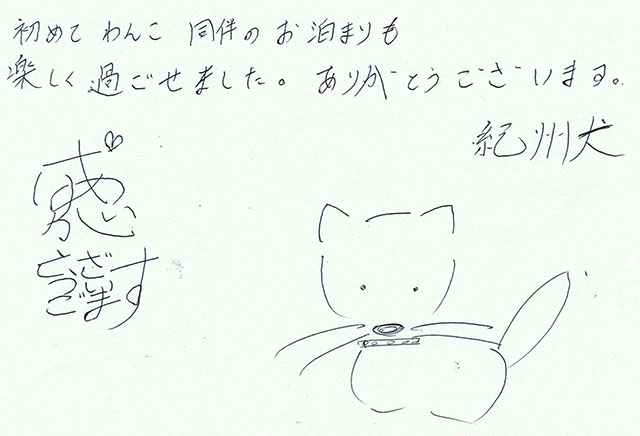 初めて わんこ 同伴の お泊まりも
楽しく 過ごせました。 ありがとうございます。
紀州犬